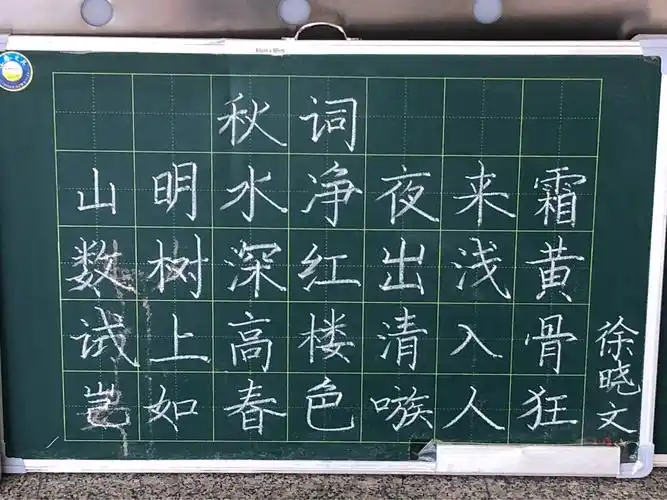 秋词
山明水净夜来霜
数树深红出浅黄
试上高楼清入骨
岂如春色嗾人狂
徐晓文